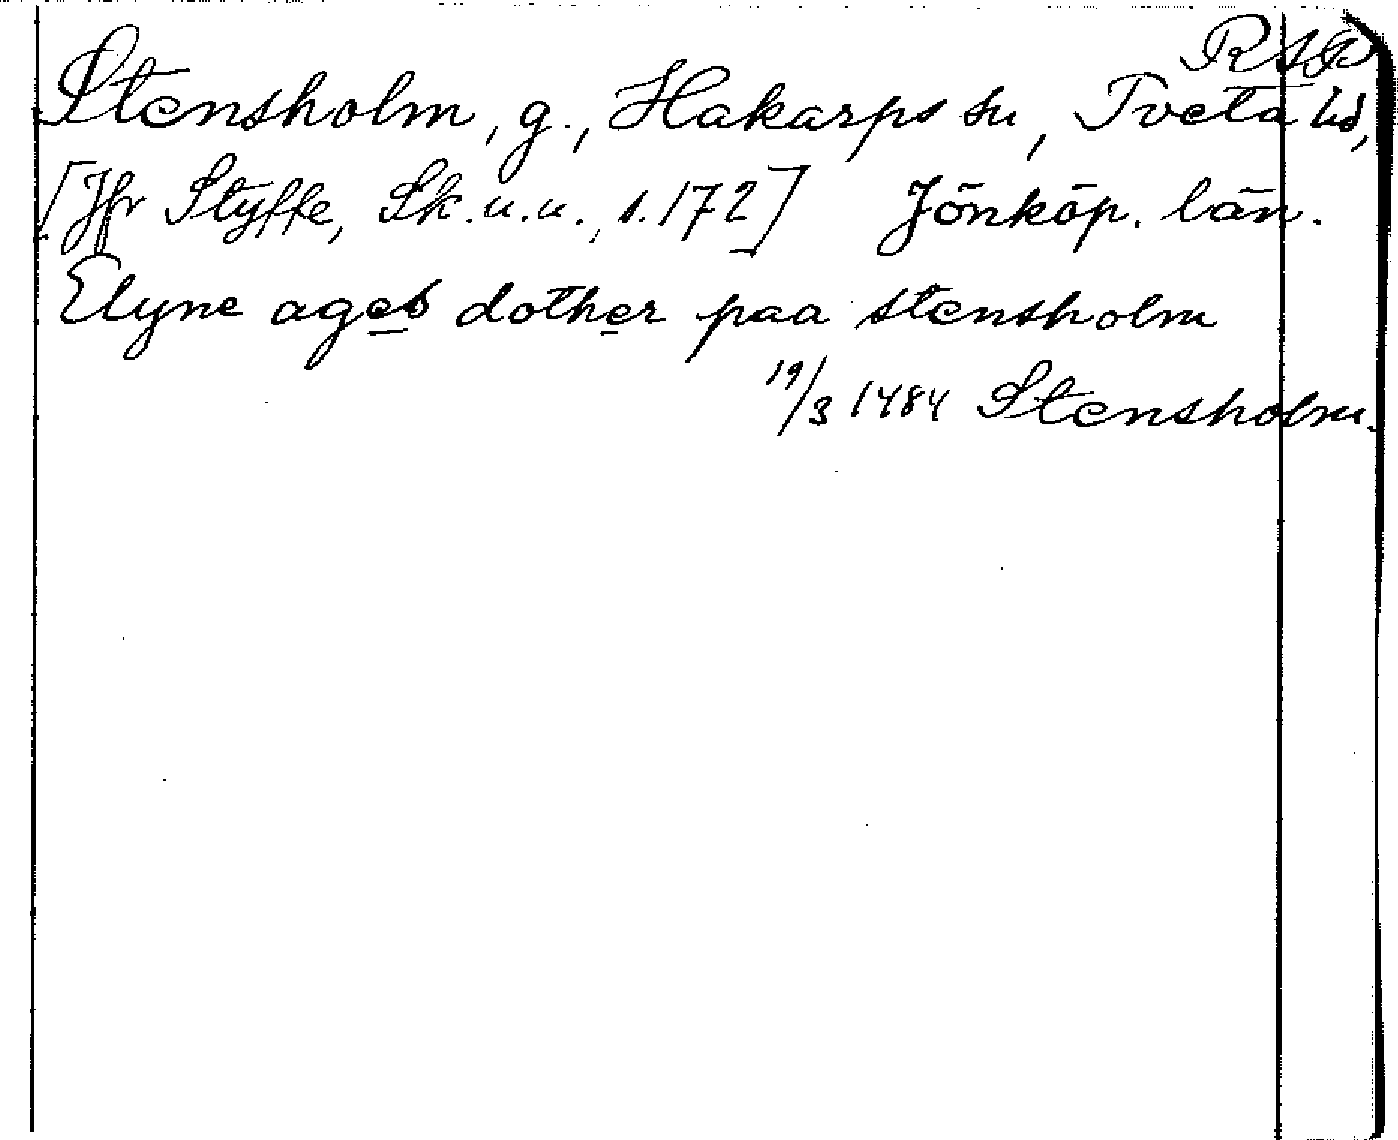 RAP
Stensholm, g., Hakarps sn, Tveta hd,
[Jfr Styffe, Sk.u.u., s. 172] Jönköp. län.
Elyne ages dother paa stensholm
19/3 1484 Stensholm.